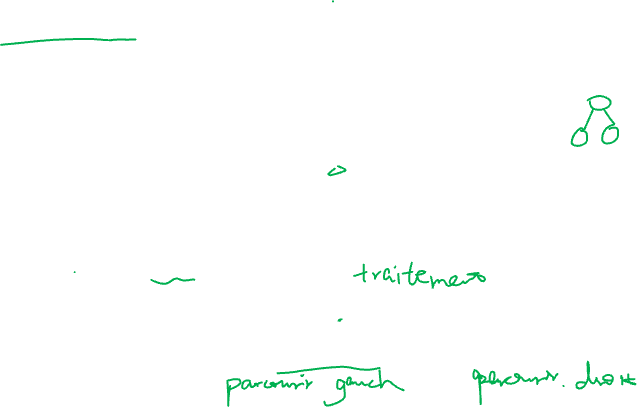 traitement
parcourir gauch parcourir. droit